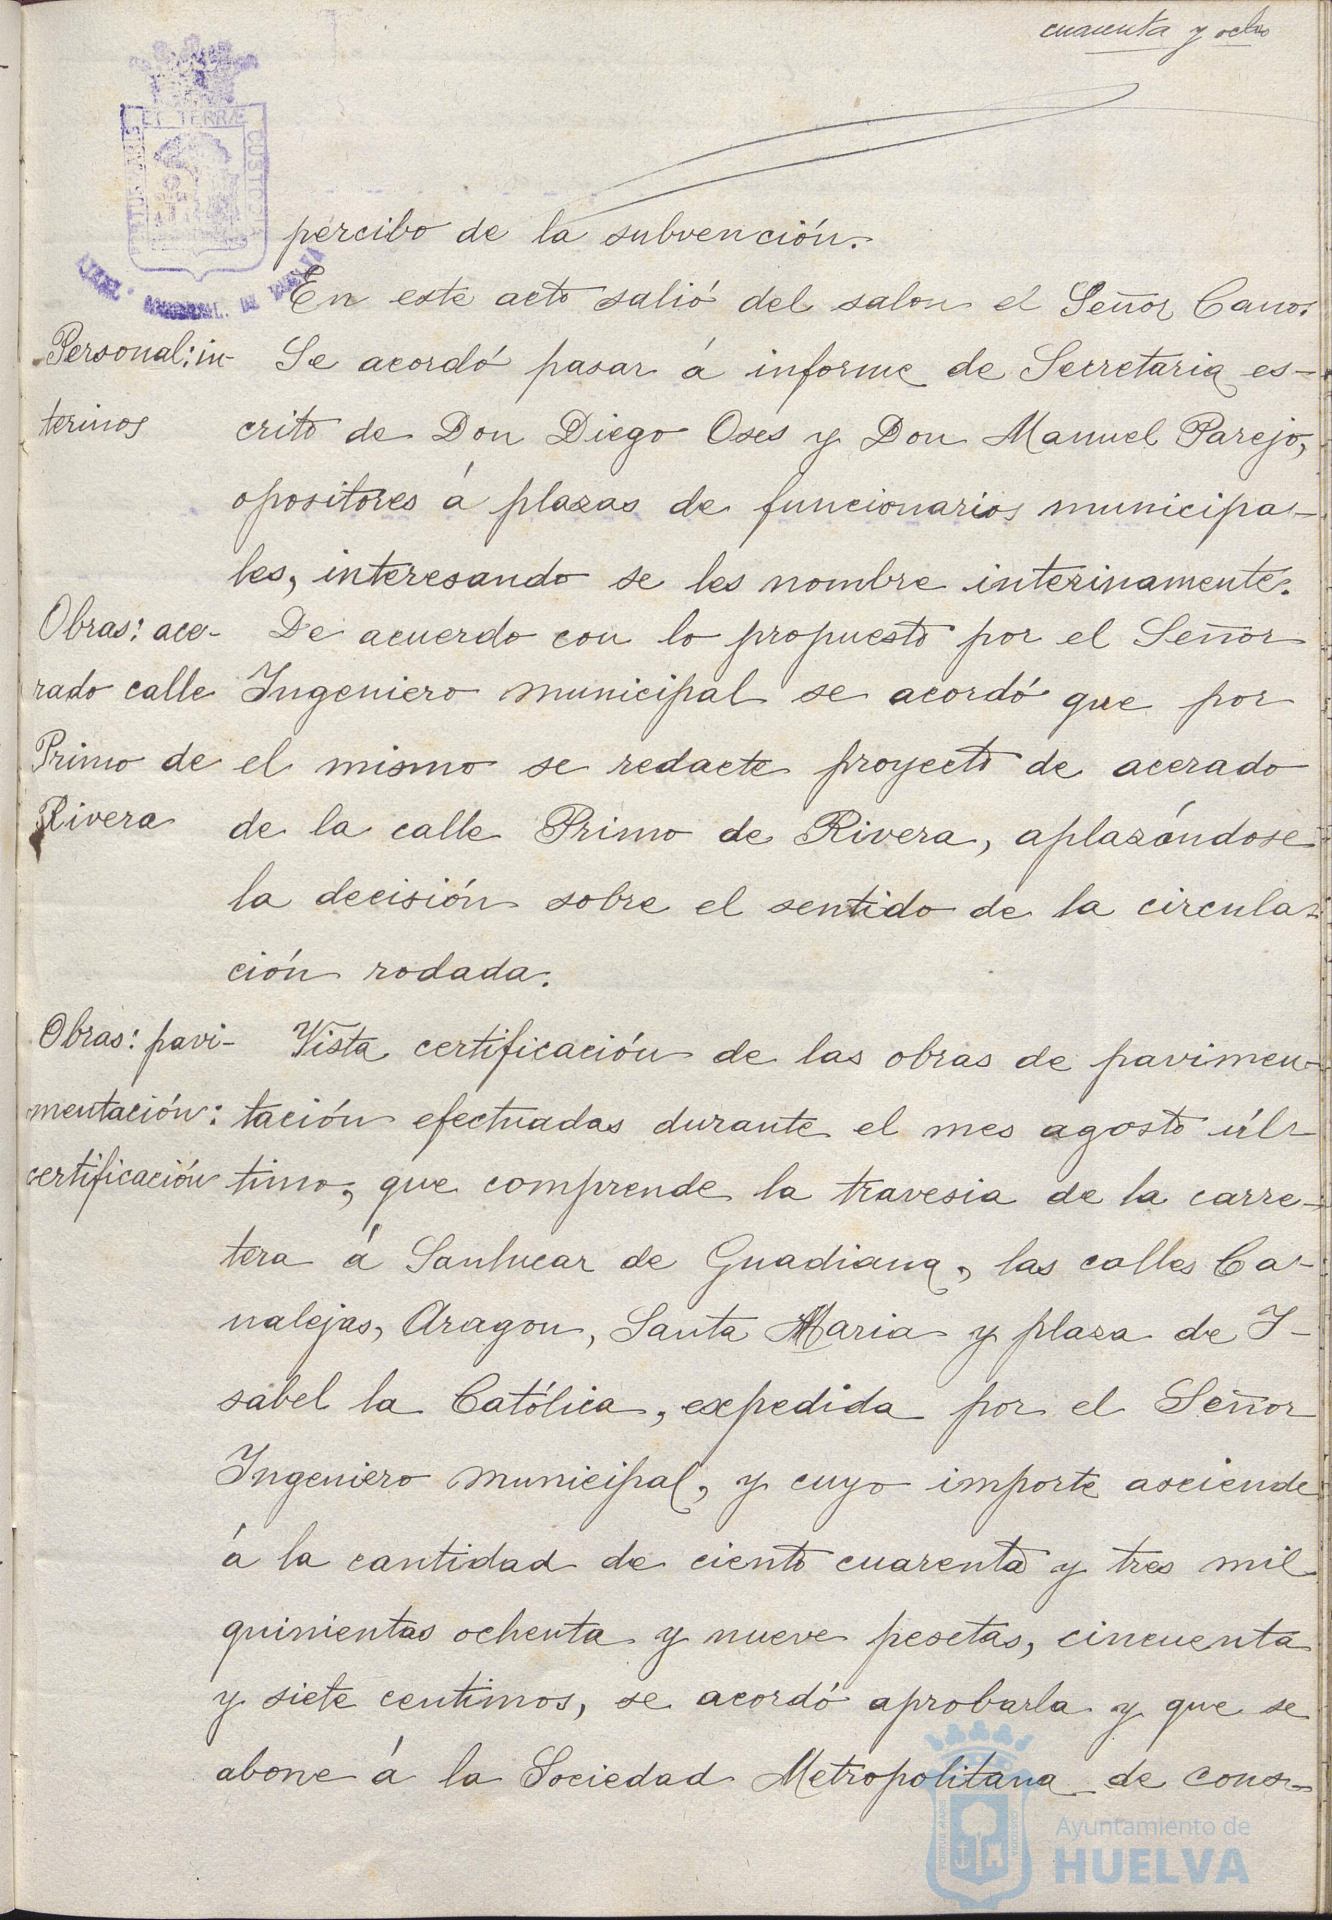 cuarenta y ocho
ET TERRÆ
CUSTODIA
percibo de la subvención.
En este acto salió del salon el Señor Cano.
Personal: in-
terinos
Se acordó pasar á informe de Secretaria es-
crito de Don Diego Oses y Don Manuel Parejo,
opositores á plazas de funcionarios municipa-
les, interesando se les nombre interinamente.
Obras: ace-
rado calle
Primo de
Rivera
De acuerdo con lo propuesto por el Señor
Ingeniero municipal se acordó que por
el mismo se redacte proyecto de acerado
de la calle Primo de Rivera, aplazándose
la decisión sobre el sentido de la circula-
ción rodada.
Obras: pavi-
mentación:
certificación
Vista certificación de las obras de pavimen-
tación efectuadas durante el mes agosto úl-
timo, que comprende la travesia de la carre-
tera á Sanlucar de Guadiana, las calles Ca-
nalejas, Aragon, Santa Maria y plaza de I-
sabel la Católica, expedida por el Señor
Ingeniero municipal, y cuyo importe asciende
á la cantidad de ciento cuarenta y tres mil
quinientas ochenta y nueve pesetas, cincuenta
y siete centimos, se acordó aprobarla y que se
abone á la Sociedad Metropolitana de cons-
Ayuntamiento de
HUELVA